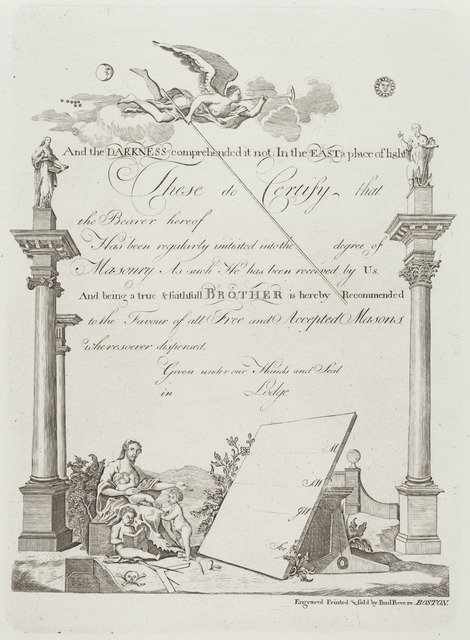 And the DARKNESS comprehended it not. In the EAST a place of light
These do Certify that
the Bearer hereof
Has been regularly initiated into the degree of
Masonry As such He has been received by Us.
And being a true & faithfull BROTHER is hereby Recommended
to the Favour of all Free and Accepted Masons
wheresoever dispersed.
Given under our Hands and Seal
in Lodge
M.
SW
JW
Engraved Printed & Sold by Paul Revere. BOSTON.